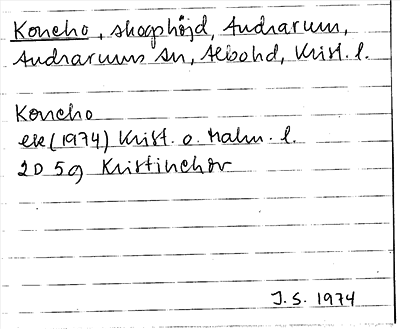 Koncho, skogshöjd, Andrarum,
Andrarums sn, Albohd, Krist. l.
Koncho
ek (1974) Krist. o. Malm. l.
2D 5g Kristinehov
J. S. 1974